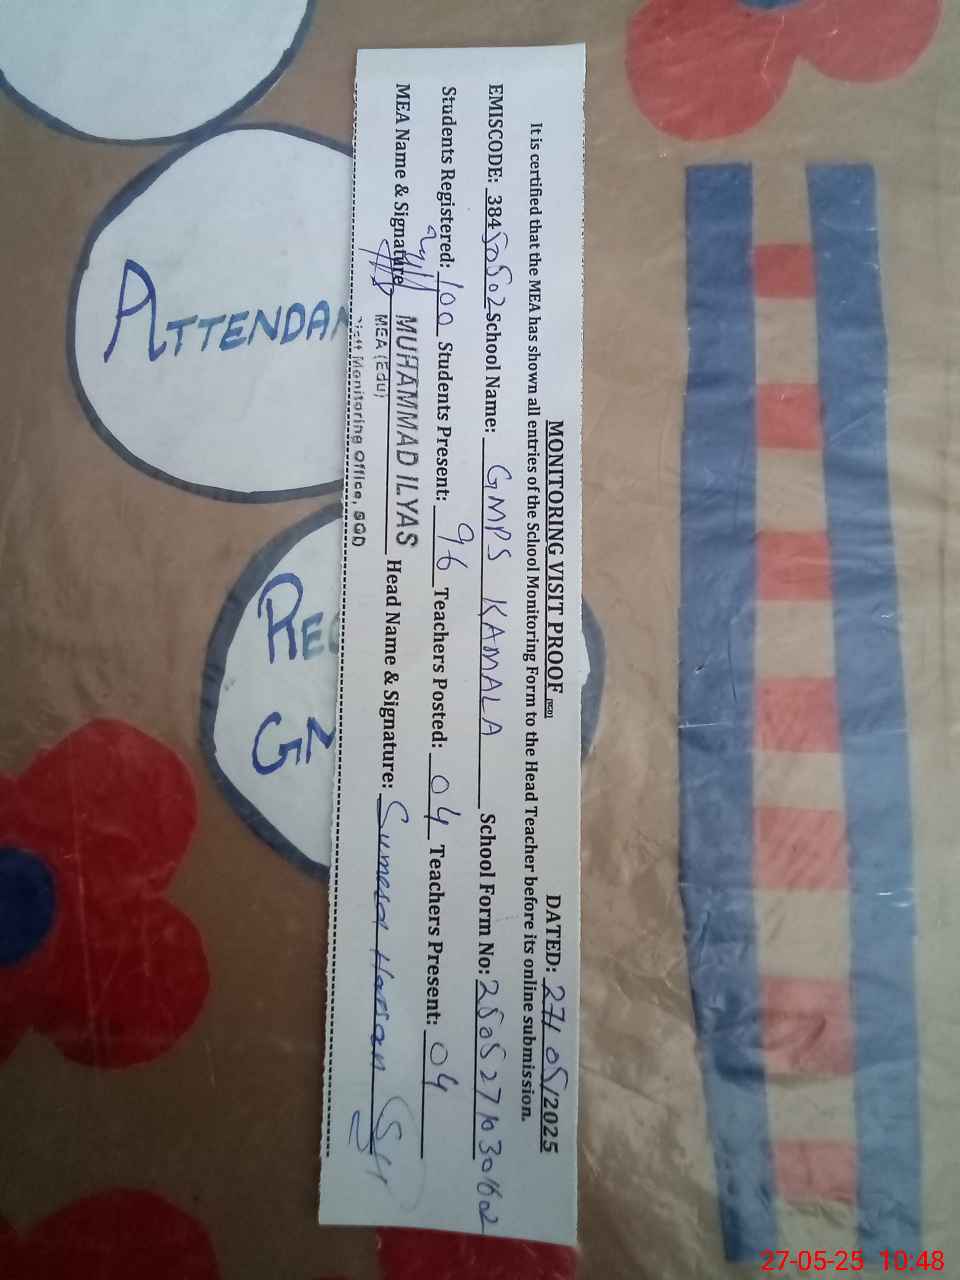 MONITORING VISIT PROOF DATED: 27/05/2025
It is certified that the MEA has shown all entries of the School Monitoring Form to the Head Teacher before its online submission.
EMISCODE: 38450502 School Name: GMPS KAMALA School Form No:
Students Registered: 100 Students Present: 96 Teachers Posted: 04 Teachers Present: 04
MEA Name & Signature MUHAMMAD ILYAS Head Name & Signature: Sumera Hassan
MEA (Edu)
Monitoring Office, SGD
ATTENDAN
27-05-25 10:48